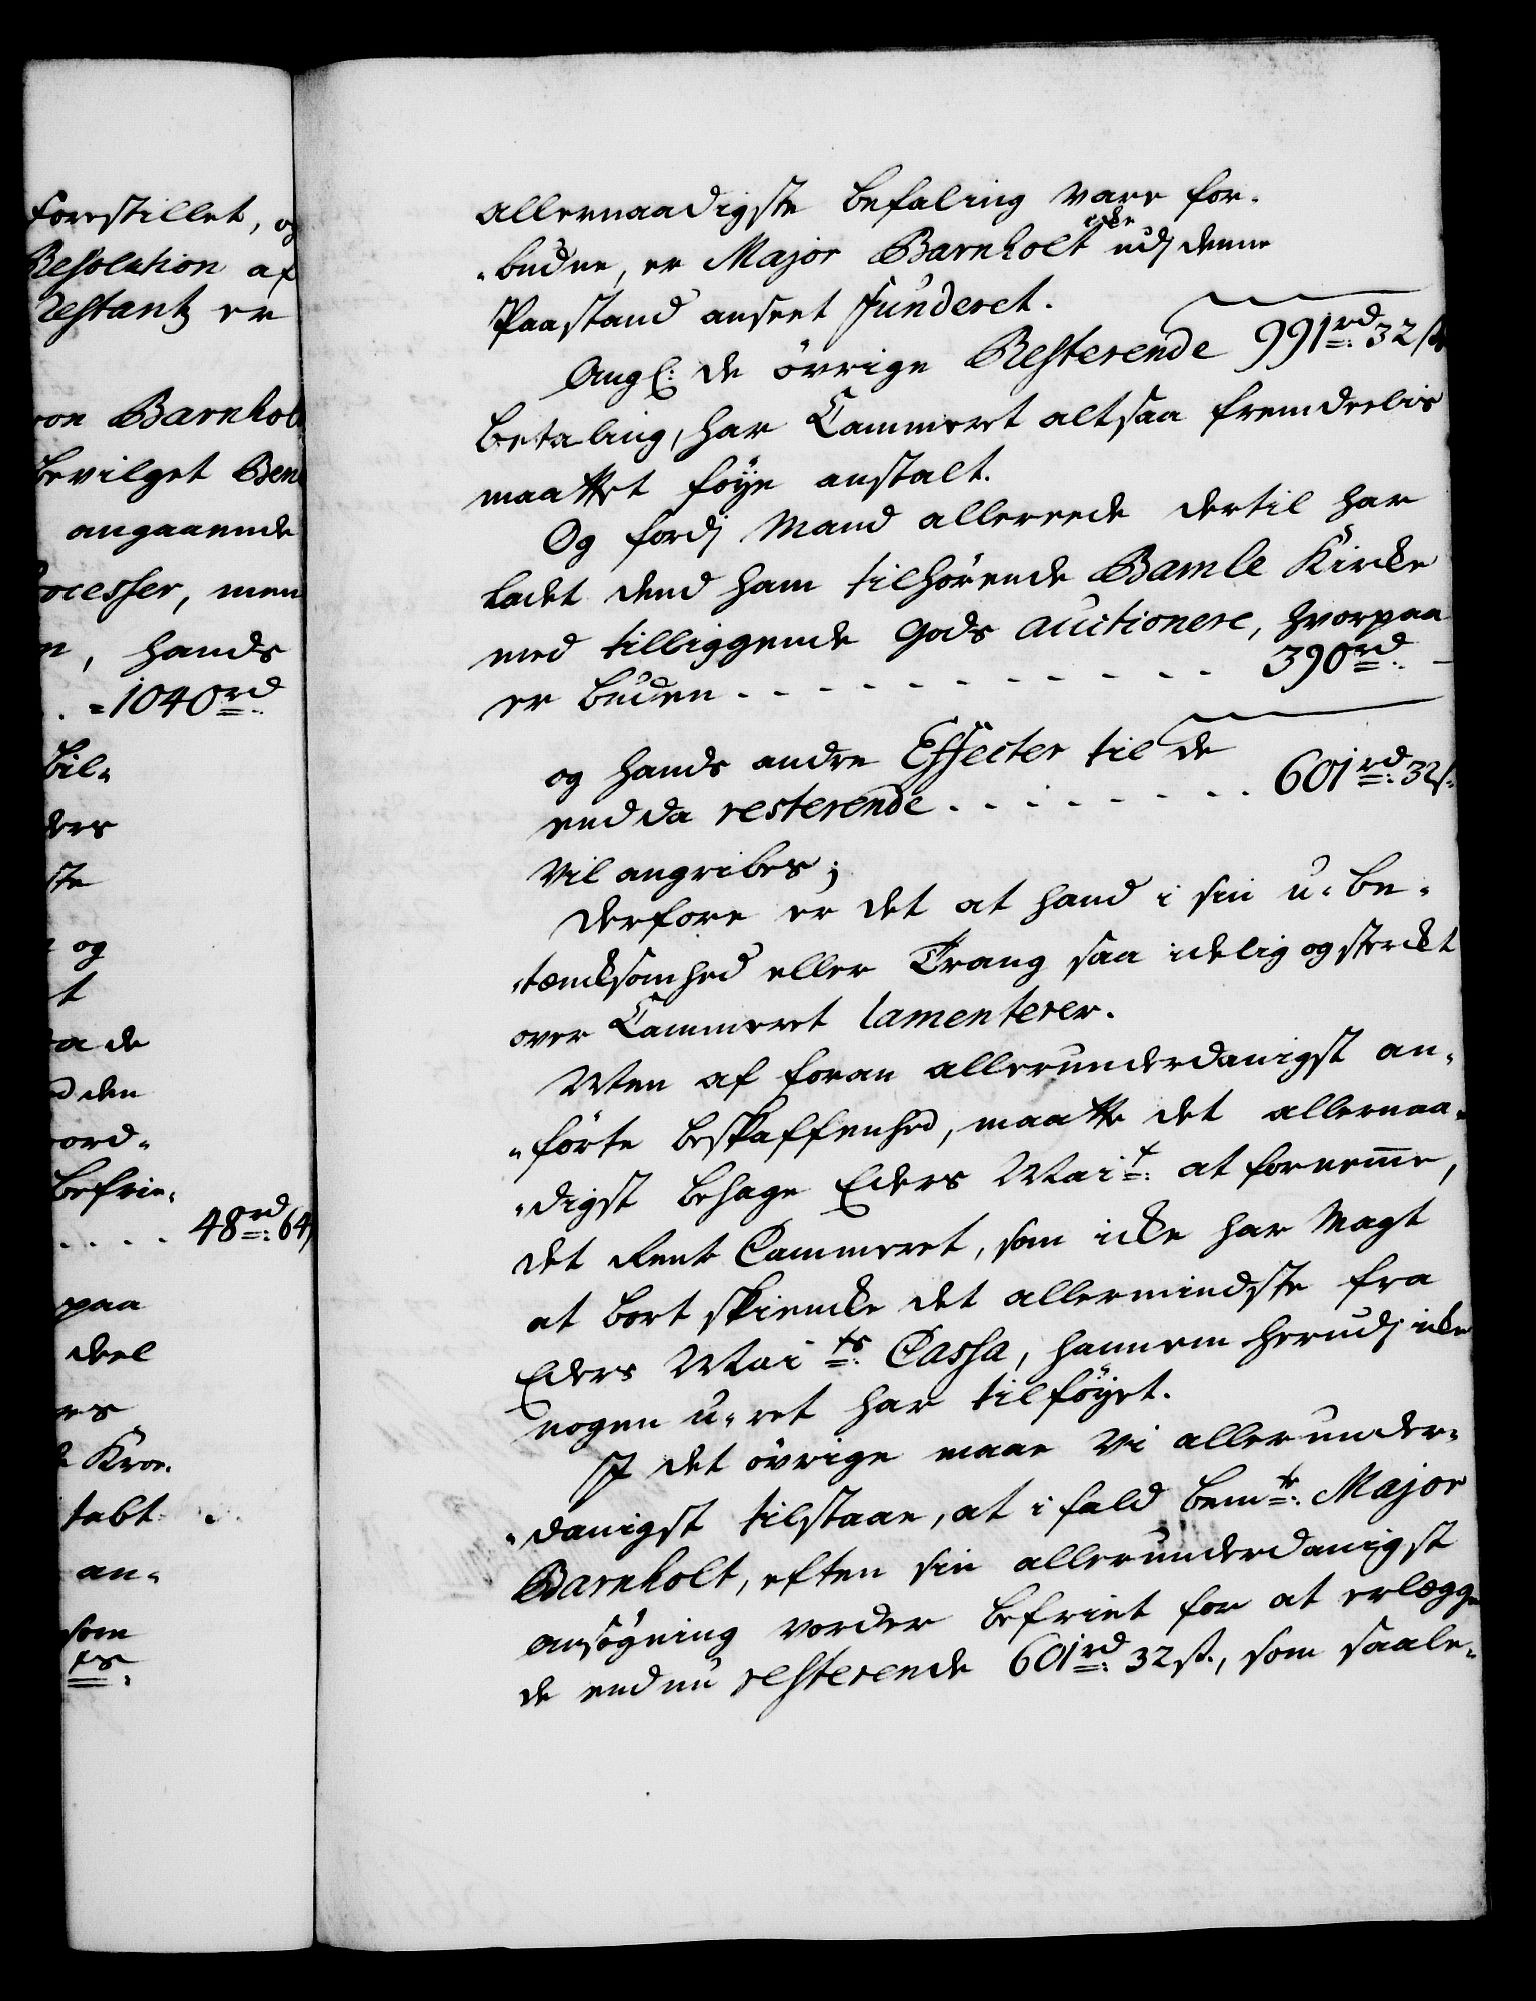 forestillet, og
Resolution af
Restantz er
von Barnhol
bevilget Ben
angaaende
ocesser, men
n, hands
. =1040rd
bil-
ders
ste
og
t
a de
d den
ord-
befrie-
. . . . 48rd: 64
paa
deel
es
Kron.
tabt
an-
som
ts:
allernaadigste befaling vare for-
-budne, er Major Barnholt icke udj denne
Paastand anseet funderet.
Angl: de övrige Resterende 991rd: 32 s
betaling, har Cammeret altsaa fremdeelis
maattet föye anstalt.
Og fordj Mand allereede dertil har
ladet dend ham tilhörende Bamle Kircke
med tilliggende Gods auctionere, hvorpaa
er buden . . . . . . . . . . . . 390rd: -
og hands andre Effecter til de
endda resterende . . . . . . . . 601rd: 32 s.
vil angribes;
derfore er det at hand i sin u-be-
-tæncksomhed eller Trang saa idelig og sterckt
over Cammeret lamenterer.
Men af foran allerunderdanigst an-
-förte beskaffenhed, maatte det allernaa-
-digst behage Eders Mait: at fornemme,
det Rente Cammeret, som icke har Magt
at bort skiencke det allermindste fra
Eders Maits: Cassa, hannem herudj icke
nogen u-ret har tilföyet.
I det övrige maae vi allerunder-
-danigst tilstaae, at i fald bemte: Major
Barnholt, efter sin allerunderdanigst
ansögning vorder befriet for at erlægge
de endnu resterende 601rd: 32 s., som saale-